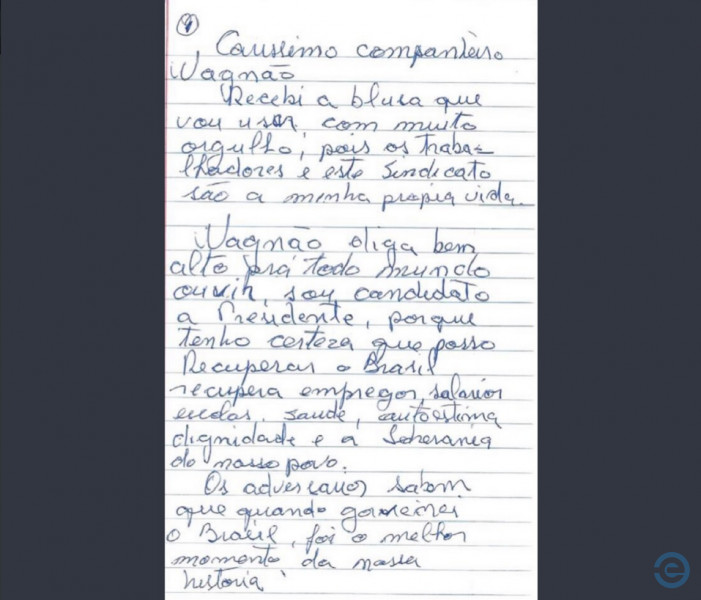 1
Carissimo companheiro
Wagnão
Recebi a blusa que
vou usar, com muito
orgulho, pois os traba=
lhadores e este Sindicato
são a minha propria vida.
Wagnão diga bem
alto prá todo mundo
ouvir, sou candidato
a Presidente, porque
tenho certeza que posso
Recuperar o Brasil
recupera empregos, salarios
saude, autoestima
dignidade e a Soberania
do nosso povo.
Os adversarios sabem
que quando governei
o Brasil, foi o melhor
momento da nossa
historia